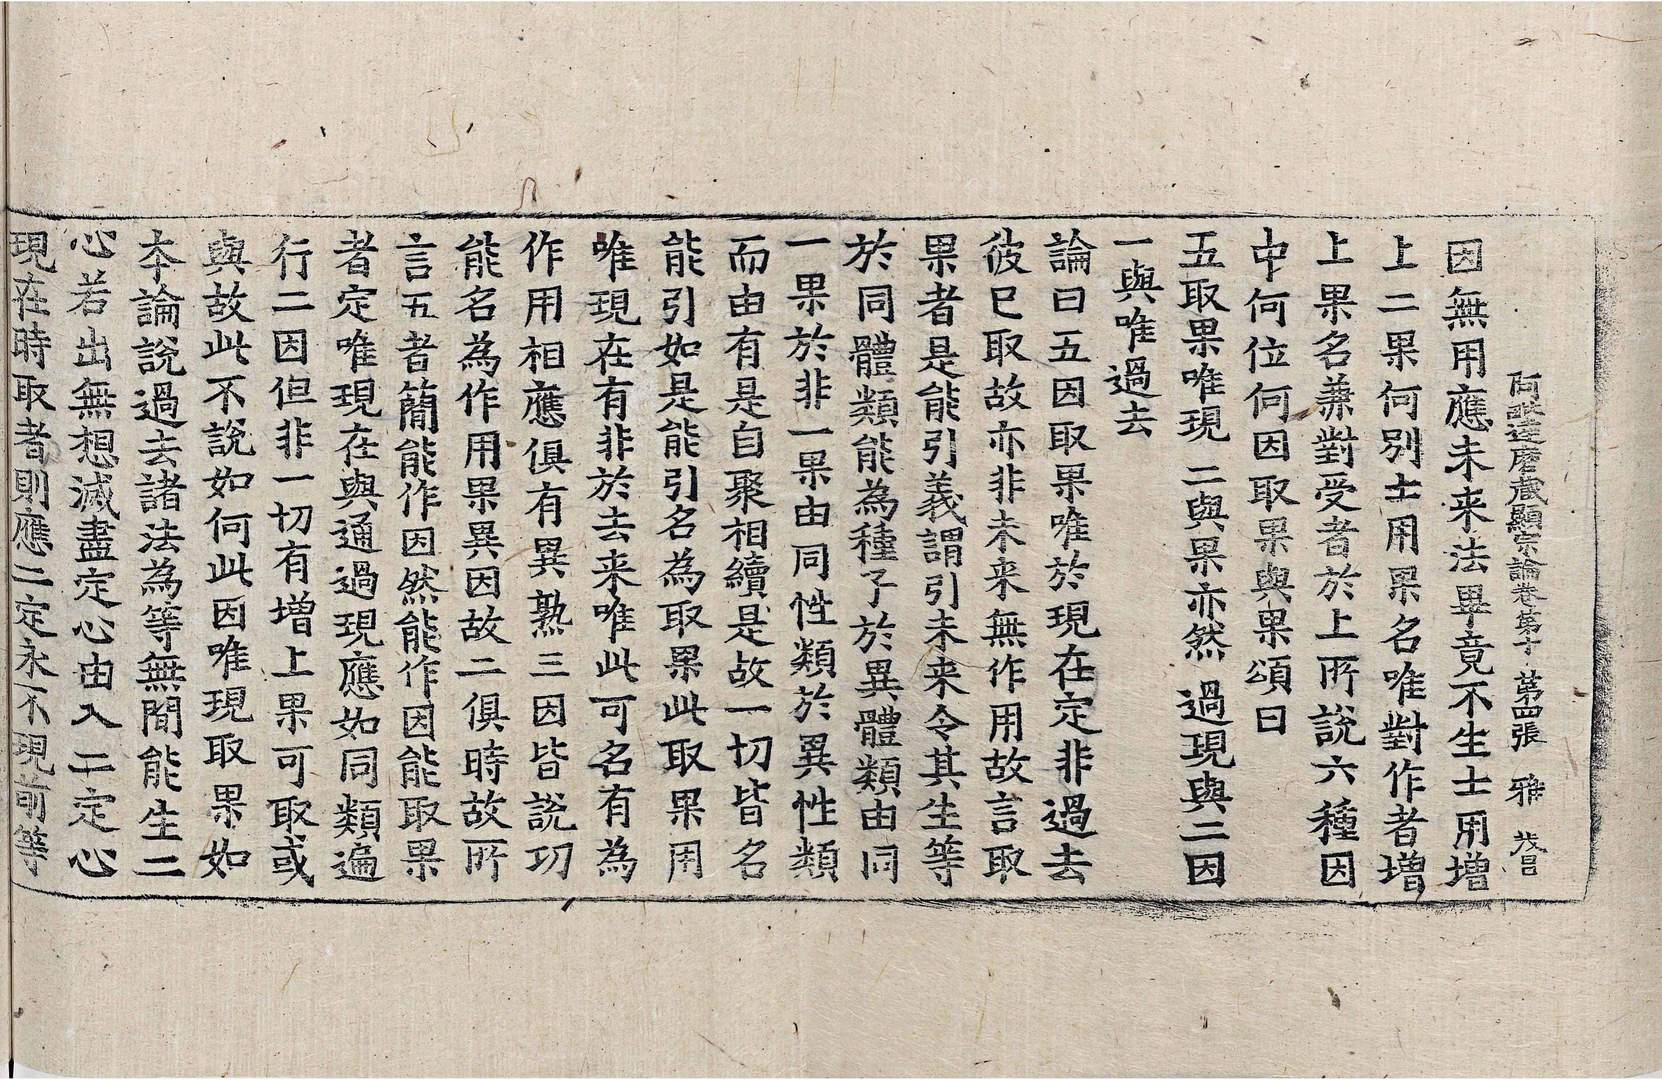 阿毗達磨藏顯宗論卷第十 第四張 雅 茂昌
因無用應未来法畢竟不生士用增
上二果何別士用果名唯對作者增
上果名兼對受者於上所說六種因
中何位何因取果與果頌曰
五取果唯現 二與果亦然 過現與二因
一與唯過去
論曰五因取果唯於現在定非過去
彼已取故亦非未来無作用故言取
果者是能引義謂引未来令其生等
於同體類能為種子於異體類由同
一果於非一果由同性類於異性類
而由有是自聚相續是故一切皆名
能引如是能引名為取果此取果用
唯現在有非於去来唯此可名有為
作用相應俱有異熟三因皆說功
能名為作用果異因故二俱時故所
言五者簡能作因然能作因能取果
者定唯現在與通過現應如同類遍
行二因但非一切有增上果可取或
與故此不說如何此因唯現取果如
本論說過去諸法為等無間能生二
心若出無想滅盡定心由入二定心
現在時取者則應二定永不現前等